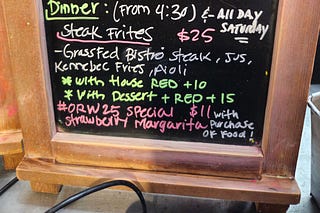 Dinner: (From 4:30) & ALL DAY SATURDAY
Steak Frites $25
- Grassfed Bistro Steak, Jus,
Kennebec Fries, Aioli
* With House RED +10
* With Dessert + RED + 15
#DRW25 Special $11 with
Strawberry Margarita Purchase
OF FOOD!